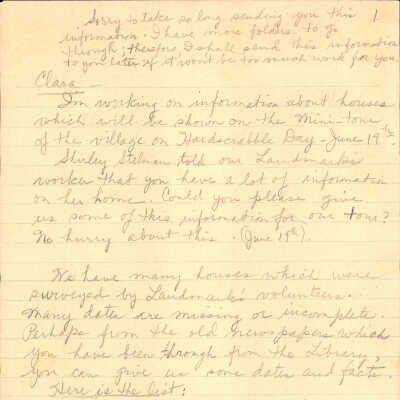 Sorry to take so long sending you this 1
information. I have more folders to go
through; therefore, I shall send this information
to you later if it won't be too much work for you.
Clara —
I'm working on information about houses
which will be shown on the Mini-tour
of the village on Hardscrabble Day - June 19th.
Shirley Stelman told our Landmarks
worker that you have a lot of information
on her home. Could you please give
us some of this information for our tour?
No hurry about this. (June 19th).
We have many houses which were
surveyed by Landmark's volunteers.
Many dates are missing or incomplete.
Perhaps from the old newspapers which
you have been through from the Library,
you can give us some dates and facts.
Here is the list: